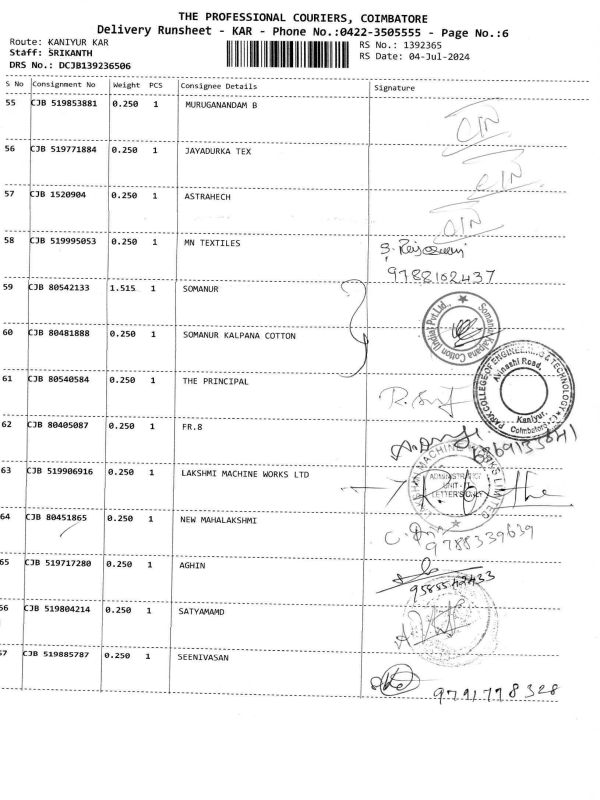 THE PROFESSIONAL COURIERS, COIMBATORE
Delivery Runsheet - KAR - Phone No.:0422-3505555 - Page No.:6
Route: KANIYUR KAR RS No.: 1392365
Staff: SRIKANTH RS Date: 04-Jul-2024
DRS No.: DCJB139236506
S No Consignment No Weight PCS Consignee Details Signature
55 CJB 519853881 0.250 1 MURUGANANDAM B
56 CJB 519771884 0.250 1 JAYADURKA TEX
57 CJB 1520904 0.250 1 ASTRAHECH
58 CJB 519995053 0.250 1 MN TEXTILES
9788102437
59 CJB 80542133 1.515 1 SOMANUR
Somanur Kalpana Cotton (India) Pvt.Ltd.,
60 CJB 80481888 0.250 1 SOMANUR KALPANA COTTON
PARK COLLEGE OF ENGINEERING & TECHNOLOGY
Avinashi Road,
Kaniyur,
Coimbatore
61 CJB 80540584 0.250 1 THE PRINCIPAL
62 CJB 80405087 0.250 1 FR.8
63 CJB 519906916 0.250 1 LAKSHMI MACHINE WORKS LTD
MACHINE WORKS LIMITED
UNIT
LETTERS ONLY
64 CJB 80451865 0.250 1 NEW MAHALAKSHMI
9788339639
65 CJB 519717280 0.250 1 AGHIN
9585542433
66 CJB 519804214 0.250 1 SATYAMAMD
67 CJB 519885787 0.250 1 SEENIVASAN
9791798328